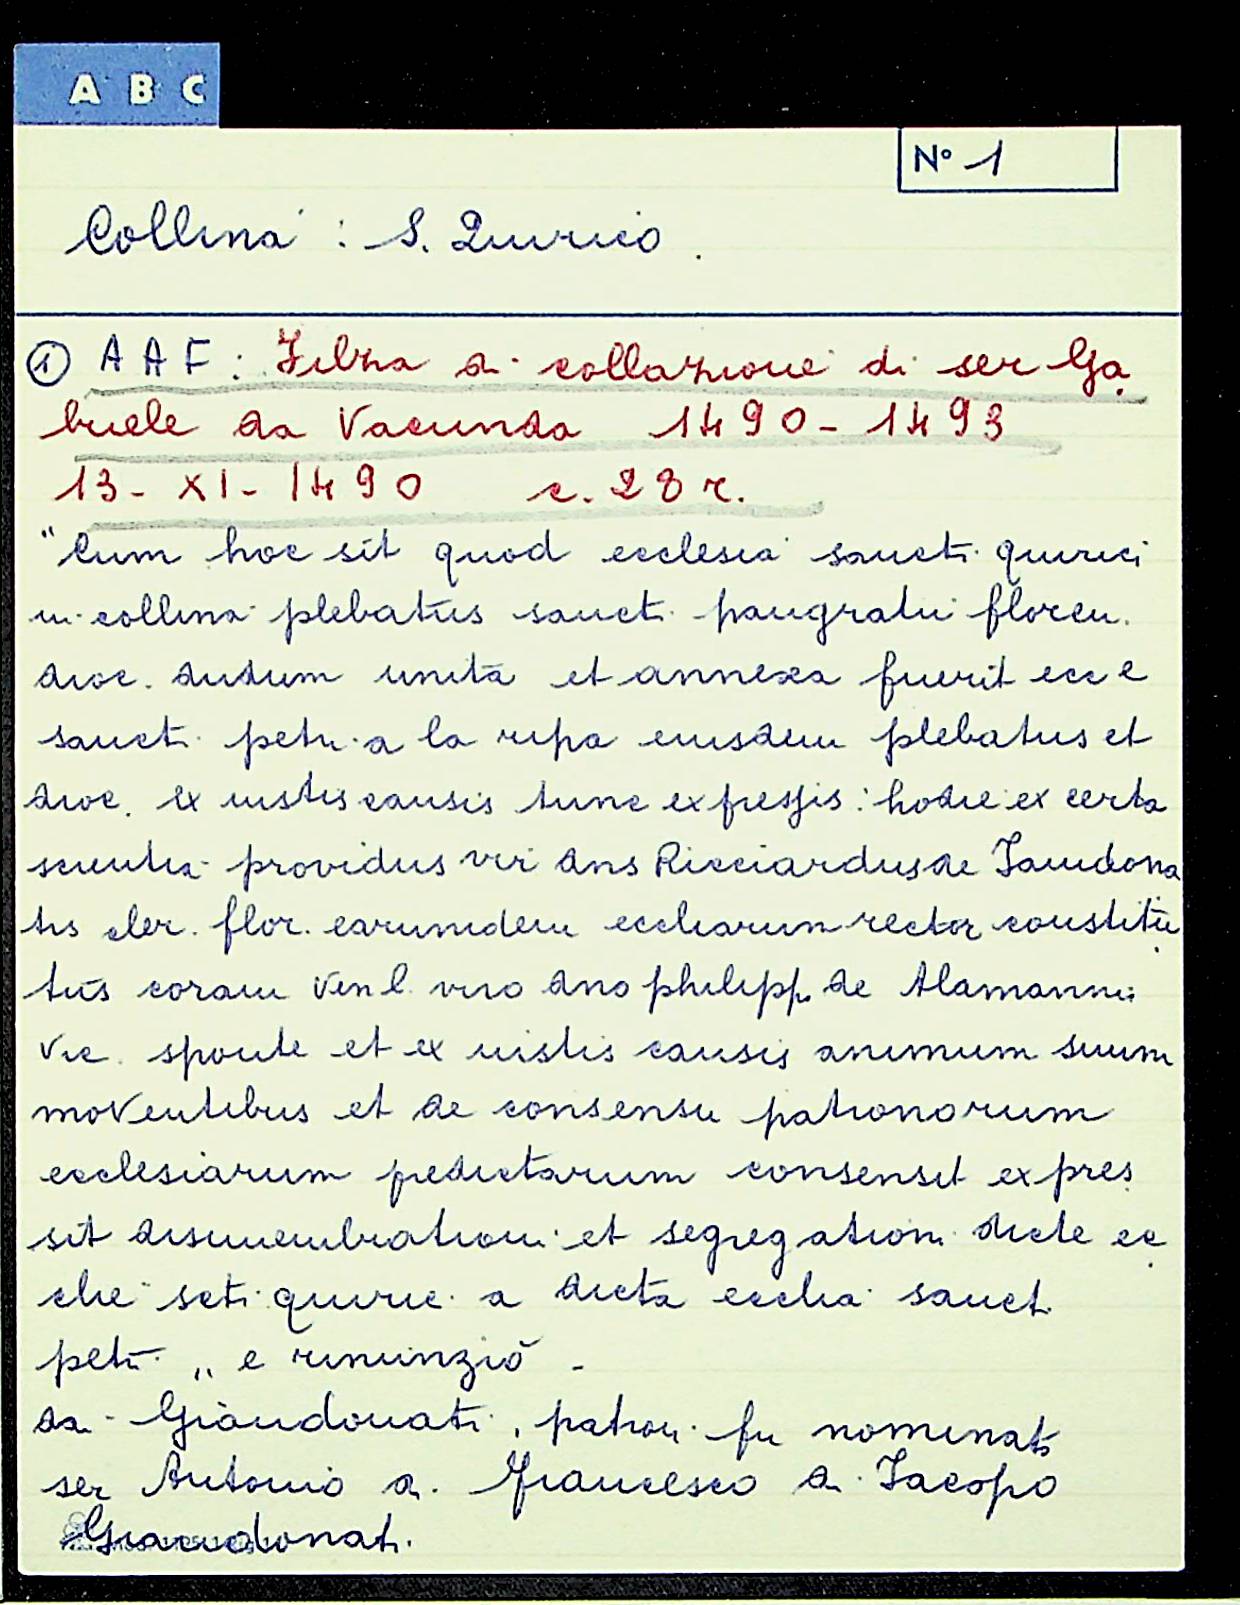 A B C
N° 1
Collina : S. Quirico
① A A F : Filza di collazione di ser Ga
briele da Vacunda 1490-1493
13-XI-1490 c. 28 r.
"Cum hoc sit quod ecclesia sancti quirici
in collina plebatus sancti pangratii floren.
dioc. dudum unita et annexa fuerit eccl
sancti petri a la ripa eiusdem plebatus et
dioc. ex iustis causis tunc expressis : hodie ex certa
scientia providus vir dns Ricciardus de Iandona
tis cler. flor. earumdem eccliarum rector constitu
tus coram venl. viro dno philipp. de Alamannis
vic. sponte et ex iustis causis animum suum
moventibus et de consensu patronorum
ecclesiarum predictarum consensit expres
sit dismembrationi et segregationi dicte ec
clie scti quiric. a dicta ecclia sancti
petri " e rinunziò -
dai Giandonati, patroni fu nominato
ser Antonio di Francesco di Jacopo
Giandonati.